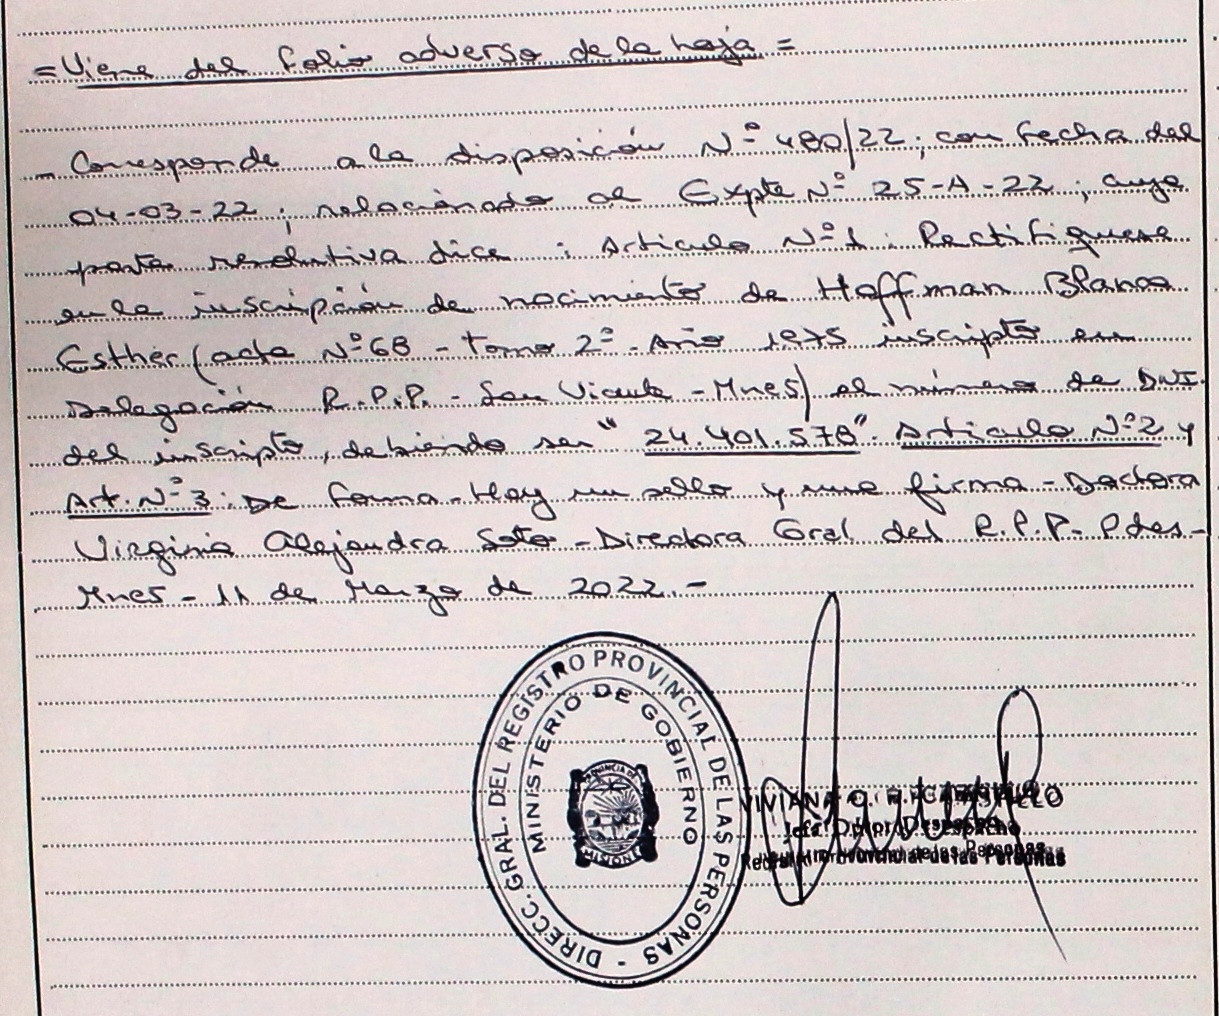 =Viene del folio adverso de la hoja=
- Corresponde a la disposición N° 480/22; con fecha del
04-03-22; relacionado al Expte N° 25-A-22; cuya
parte resolutiva dice: Articulo N°1: Rectifiquese
en la inscripción de nacimiento de Hoffman Blanca
Esther (acta N°68 - Tomo 2° - Año 1975 inscripto en
Delegación R.P.P. - San Vicente - Mnes) el número de DNI
del inscripto, debiendo ser " 24.401.578". Articulo N°2 y
Art. N°3: De forma - Hay un sello y una firma - Doctora
Virginia Alejandra Soto - Directora Gral del R.P.P. - Pdas. -
Mnes - 11 de Marzo de 2022. -
DIRECC. GRAL. DEL REGISTRO PROVINCIAL DE LAS PERSONAS -
MINISTERIO DE GOBIERNO
PROVINCIA DE
MISIONES
VIVIANA
Jefa Dpto. Despacho
Registro Provincial de las Personas